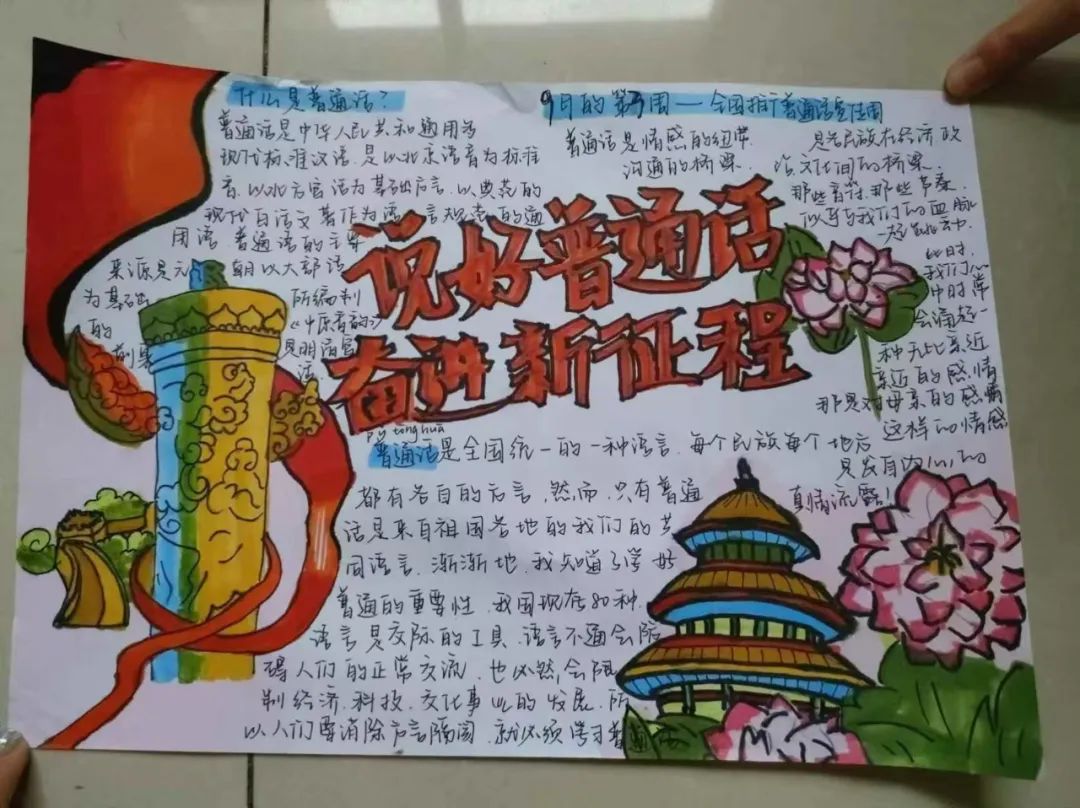 什么是普通话？
普通话是中华人民共和通用为
现代标准汉语.是以北京语音为标准
音.以北方官话为基础方言.以典范的
现代白话文著作为语言规范的通
用语 普通话的主要
来源是元朝以大都话
为基础 所编制
的 《中原音韵》
是明清官
话
9月的第3周——全国推广普通话宣传周
普通话是情感的纽带
沟通的桥梁.
是各民族在经济政
治文化间的桥梁.
那些音符.那些节奏.
似乎与我们的血脉
一起跳动.
此时.
我们心
中时常
会涌起一
种无比亲近
亲近的感情
那是对母亲的感情
这样的情感
是发自内心的
真情流露!
说好普通话
奋进新征程
pǔ tōng huà
普通话是全国统一的一种语言.每个民族每个地方
都有各自的方言.然而.只有普通
话是来自祖国各地的我们的共
同语言.渐渐地.我知道了学好
普通的重要性.我国现在80种.
语言是交际的工具.语言不通会阻
碍人们的正常交流.也必然会限
制经济.科技.文化事业的发展.所
以人们要消除方言隔阂.就必须学习普通话